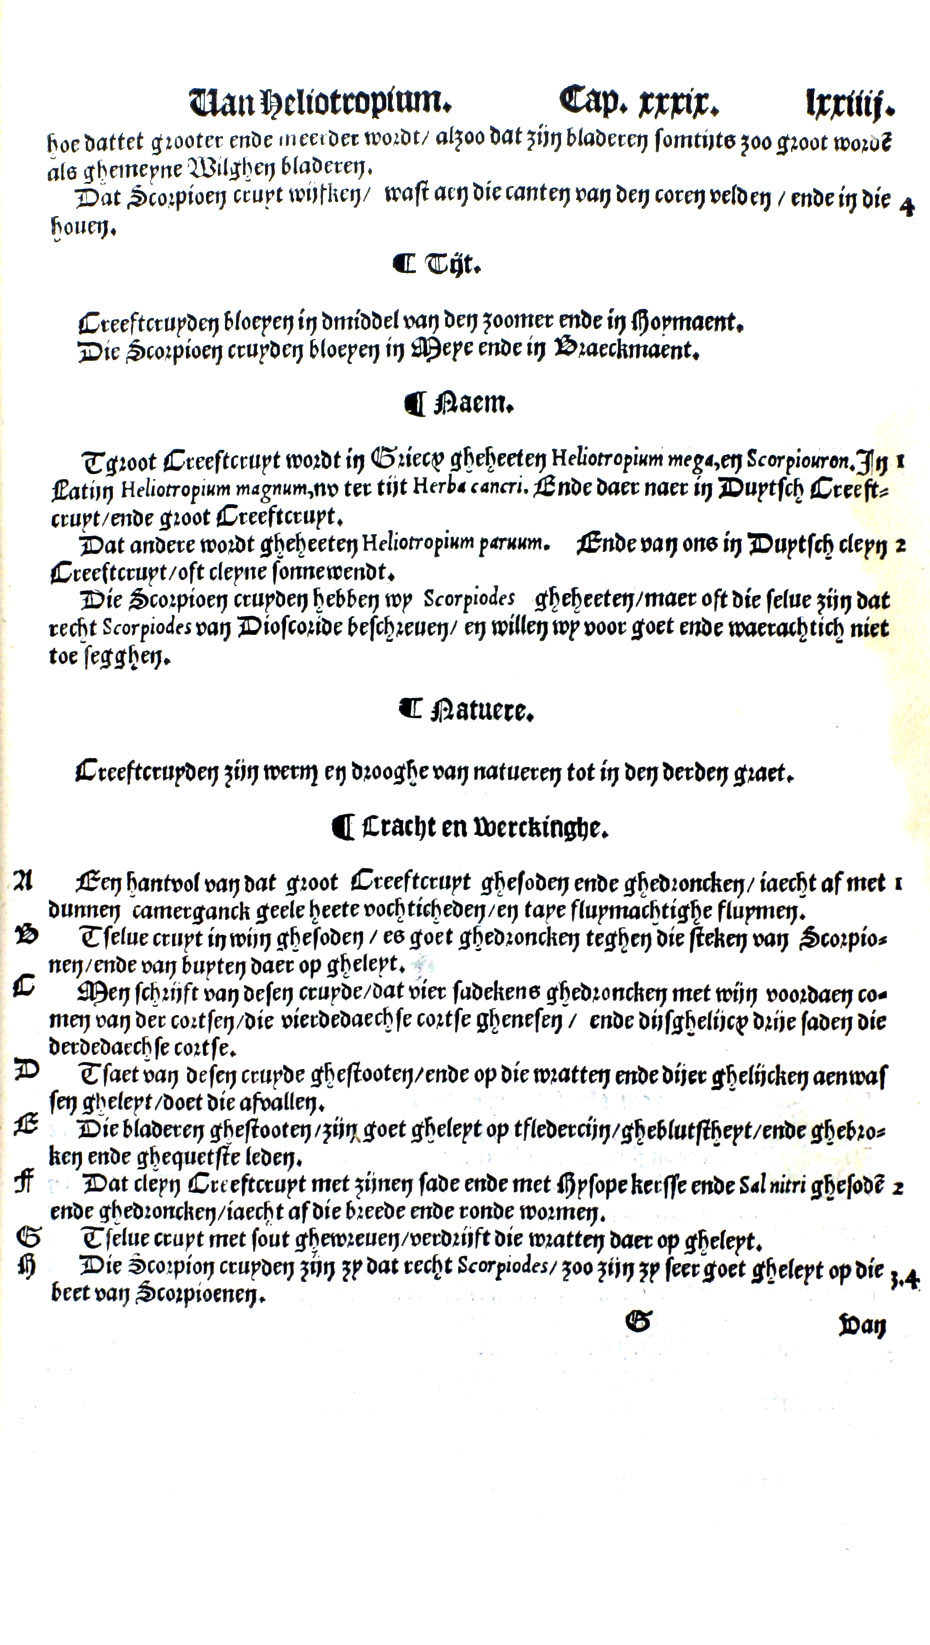 Van Heliotropium. Cap. xxxix. lxxiiij.
hoe dattet grooter ende meerder wordt/ alzoo dat zijn bladeren somtijts zoo groot wordē
als ghemeyne Wilghen bladeren.
Dat Scorpioen cruyt wijfken/ wast aen die canten van den coren velden / ende in die 4
houen.
¶ Tijt.
Creeftcruyden bloeyen in dmiddel van den zoomer ende in Hoymaent.
Die Scorpioen cruyden bloeyen in Meye ende in Braeckmaent.
¶ Naem.
Tgroot Creeftcruyt wordt in Griecx gheheeten Heliotropium mega, en Scorpiouron. In 1
Latijn Heliotropium magnum, nv ter tijt Herba cancri. Ende daer naer in Duytsch Creeft-
cruyt/ende groot Creeftcruyt.
Dat andere wordt gheheeten Heliotropium paruum. Ende van ons in Duytsch cleyn 2
Creeftcruyt/oft cleyne sonnewendt.
Die Scorpioen cruyden hebben wy Scorpiodes gheheeten/maer oft die selue zijn dat
recht Scorpiodes van Dioscoride beschreuen/ en willen wy voor goet ende waerachtich niet
toe segghen.
¶ Natuere.
Creeftcruyden zijn werm en drooghe van natueren tot in den derden graet.
¶ Cracht en Werckinghe.
A Een hantvol van dat groot Creeftcruyt ghesoden ende ghedroncken/ iaecht af met 1
dunnen camerganck geele heete vochticheden/en taye fluymachtighe fluymen.
B Tselue cruyt in wijn ghesoden / es goet ghedroncken teghen die steken van Scorpio-
nen/ende van buyten daer op gheleyt.
C Men schrijft van desen cruyde/dat vier sadekens ghedroncken met wijn voordaen co-
men van der cortsen/die vierdedaechse cortse ghenesen / ende dijsghelijcx drije saden die
derdedaechse cortse.
D Tsaet van desen cruyde ghestooten/ende op die wratten ende dijer ghelijcken aenwas
sen gheleyt/doet die afvallen.
E Die bladeren ghestooten/zijn goet gheleyt op tfledercijn/gheblutstheyt/ende ghebro-
ken ende ghequetste leden.
F Dat cleyn Creeftcruyt met zijnen sade ende met Hysope kersse ende Sal nitri ghesodē 2
ende ghedroncken/iaecht af die breede ende ronde wormen.
G Tselue cruyt met sout ghewreuen/verdrijft die wratten daer op gheleyt.
H Die Scorpion cruyden zijn zy dat recht Scorpiodes/ zoo zijn zy seer goet gheleyt op die 3.4
beet van Scorpioenen.
G Van